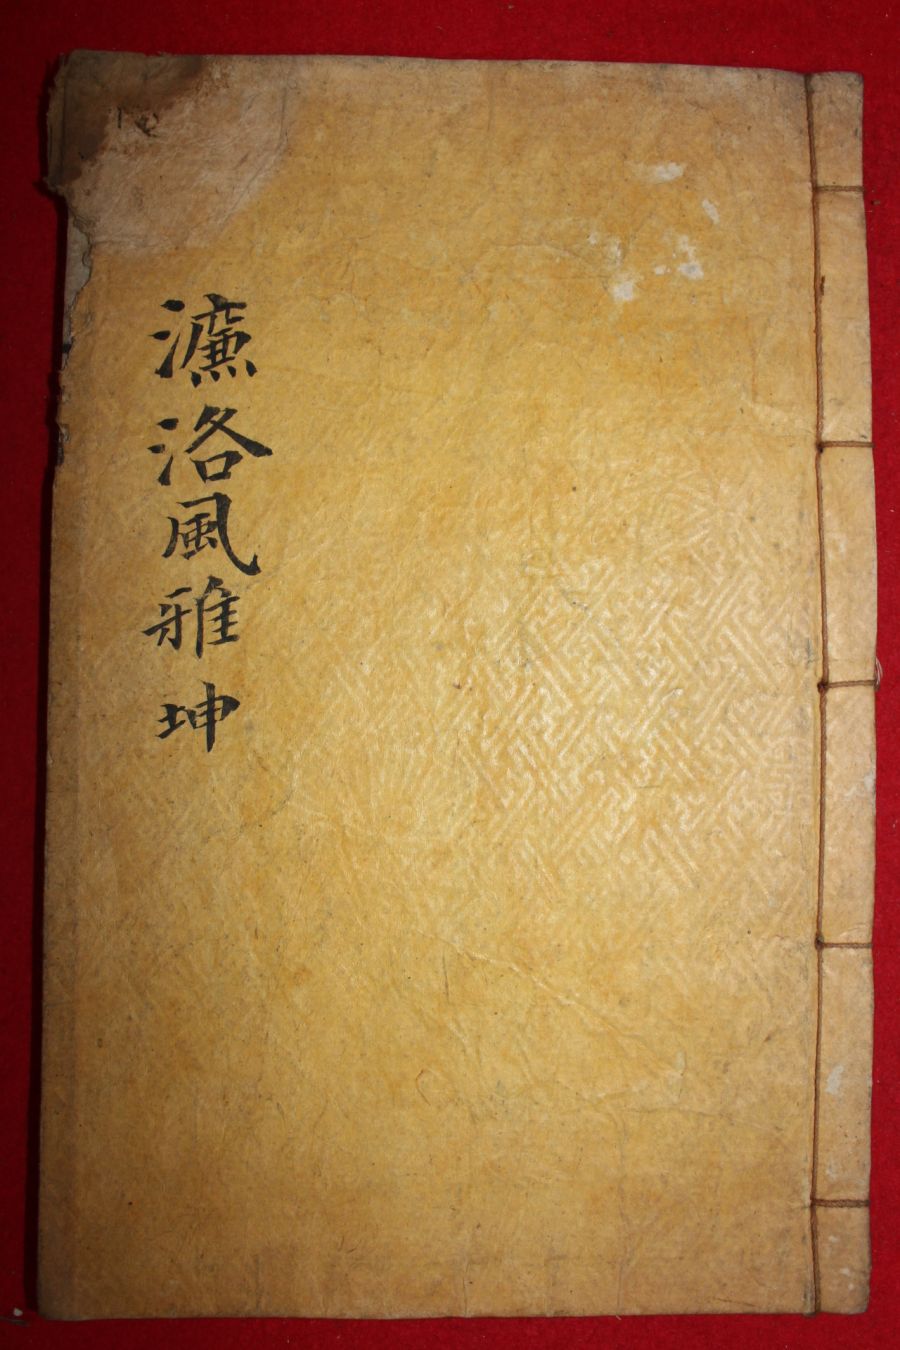 濂洛風雅 坤